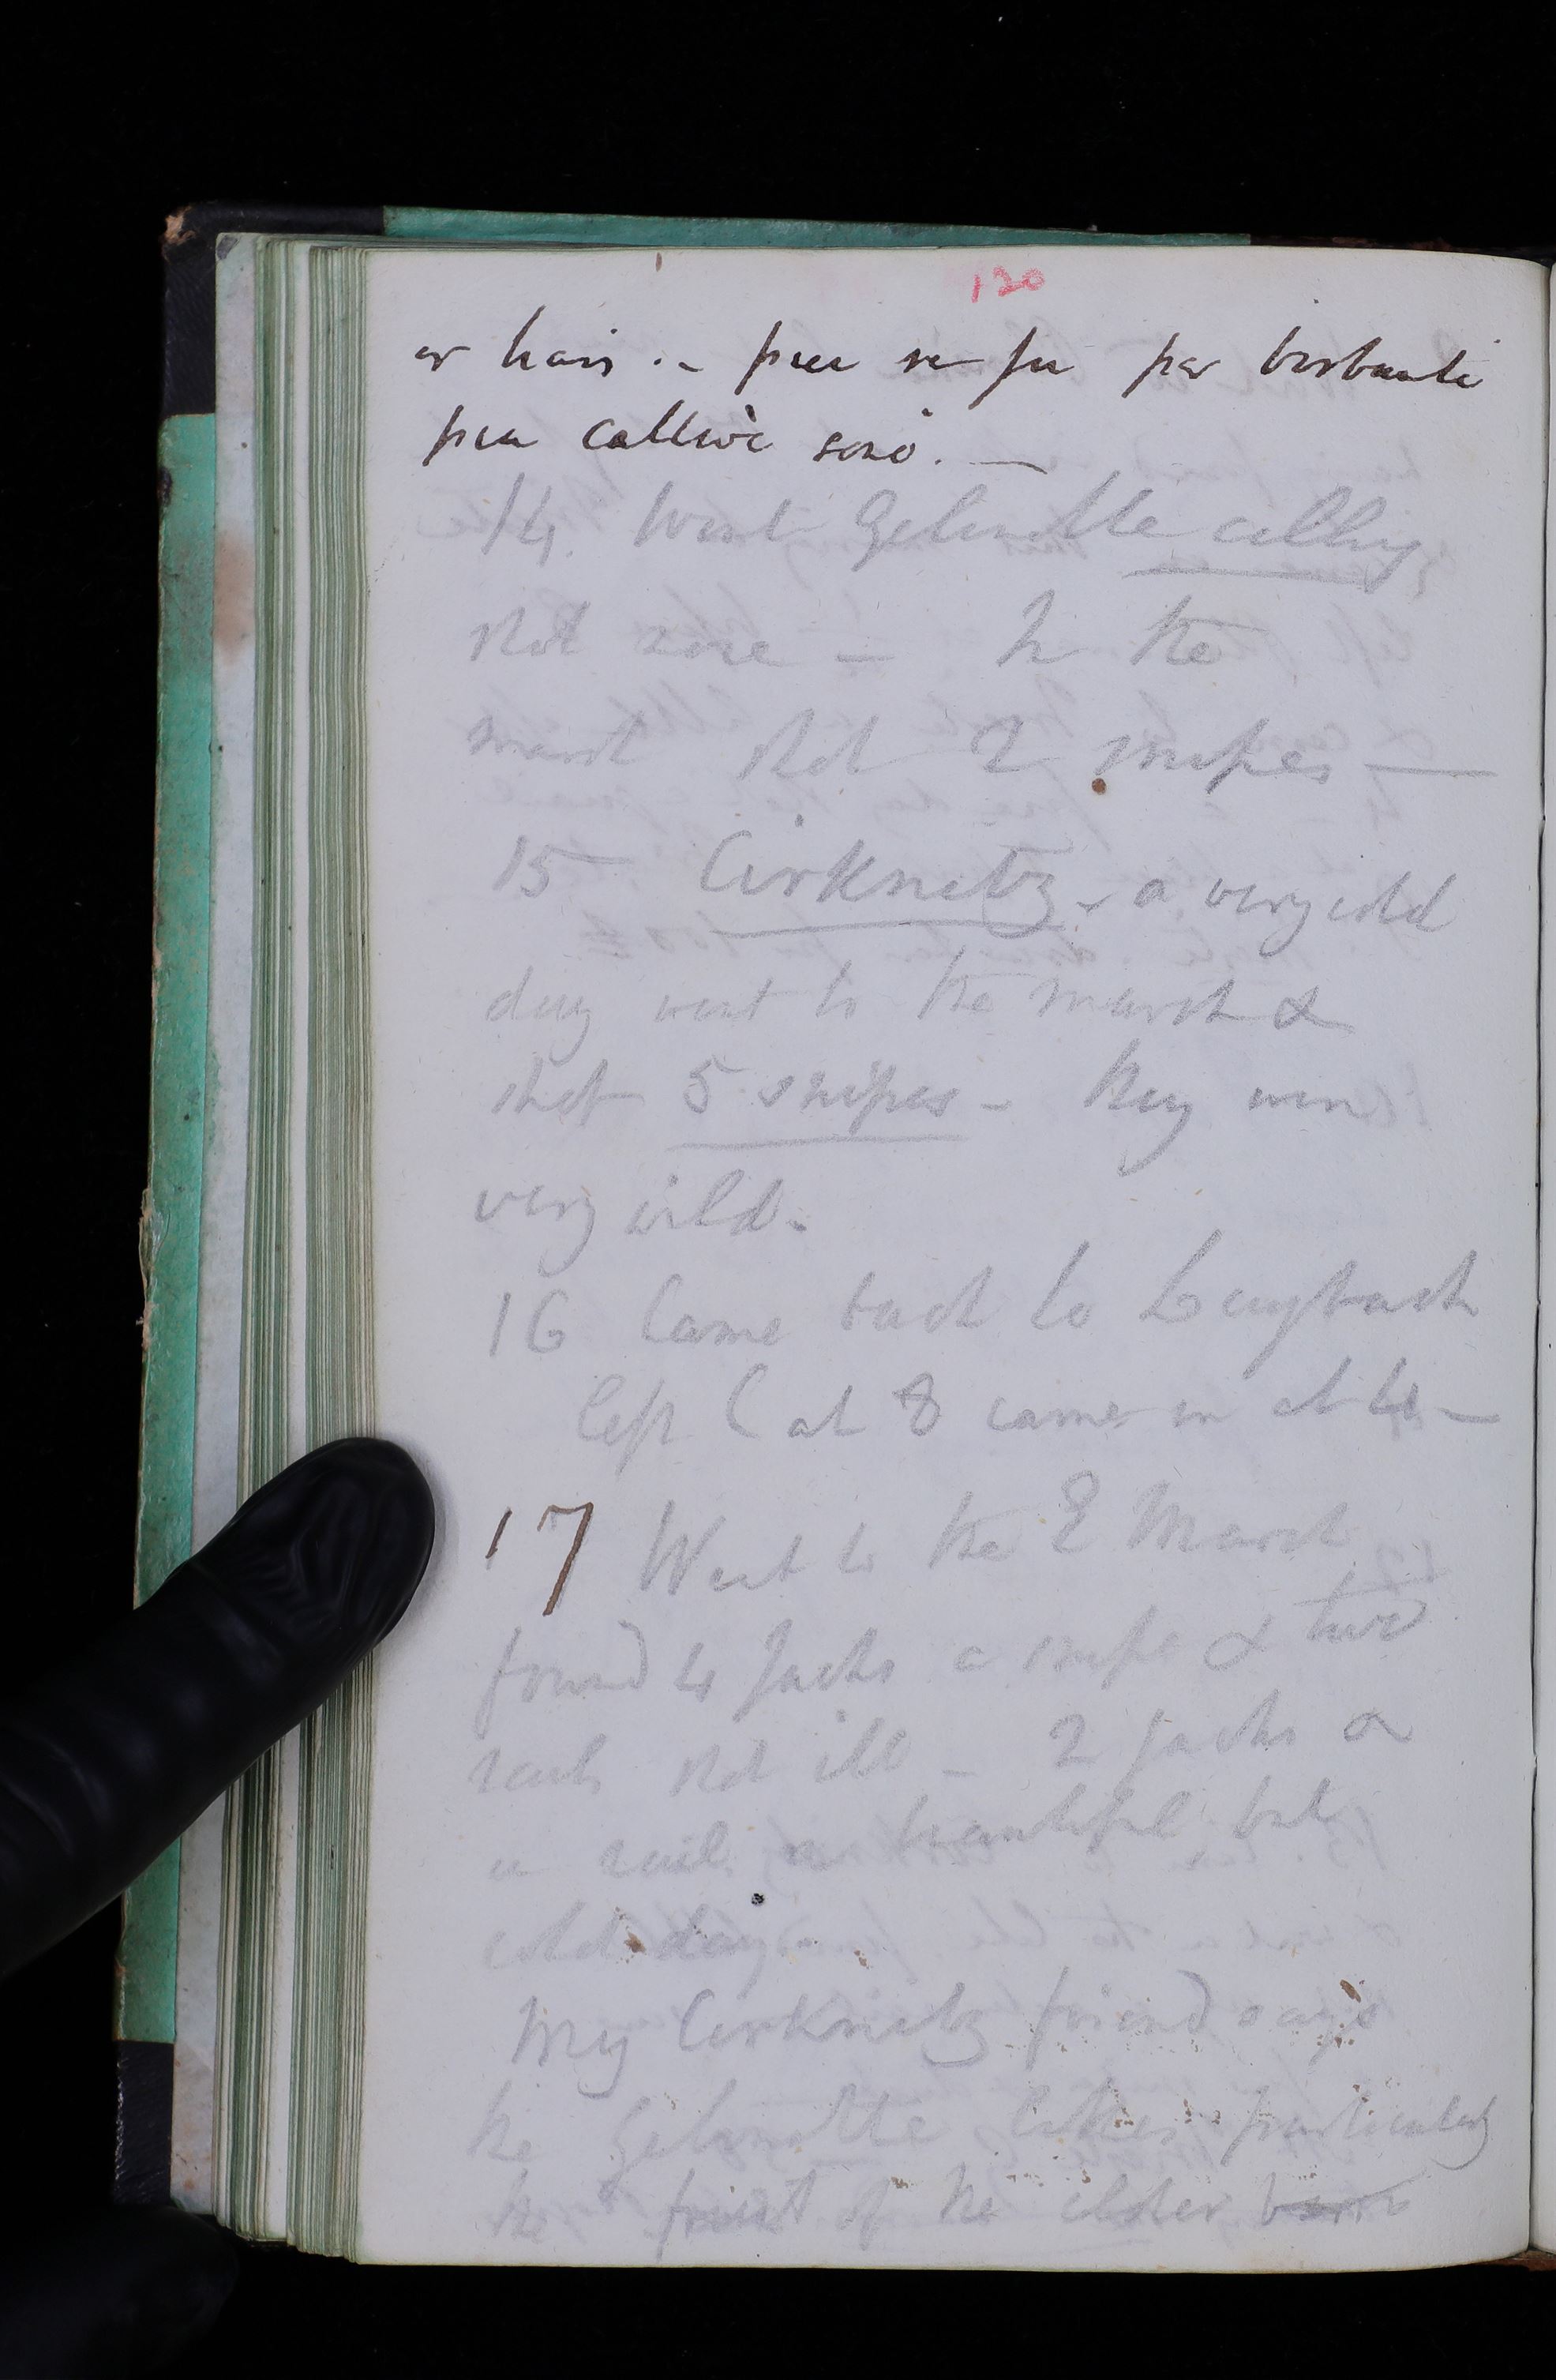 120
or hairs. - piu se fu per birbanti
piu cattivi sono. —
14. Went Gelinotte calling
shot none - In the
marsh shot 2 snipes —
15 Cirknitz - a very cold
day went to the marsh &
shot 5 snipes - they were
very wild.
16 Came back to Laybach
left C at 8 came in at 4 —
17 Went to the E Marsh
found 4 Jacks a snipe & two
rails shot ill - 2 jacks &
a rail, a beautiful but
cold day
My Cirknitz friend says
he Gelinotte likes particularly
the fruit of the elder